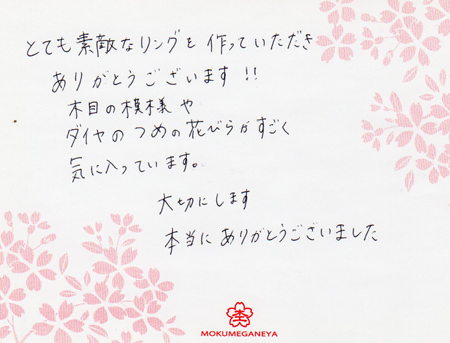 とても素敵なリングを作っていただき
ありがとうございます!!
木目の模様や
ダイヤのつめの花びらがすごく
気に入っています。
大切にします
本当にありがとうございました
MOKUMEGANEYA